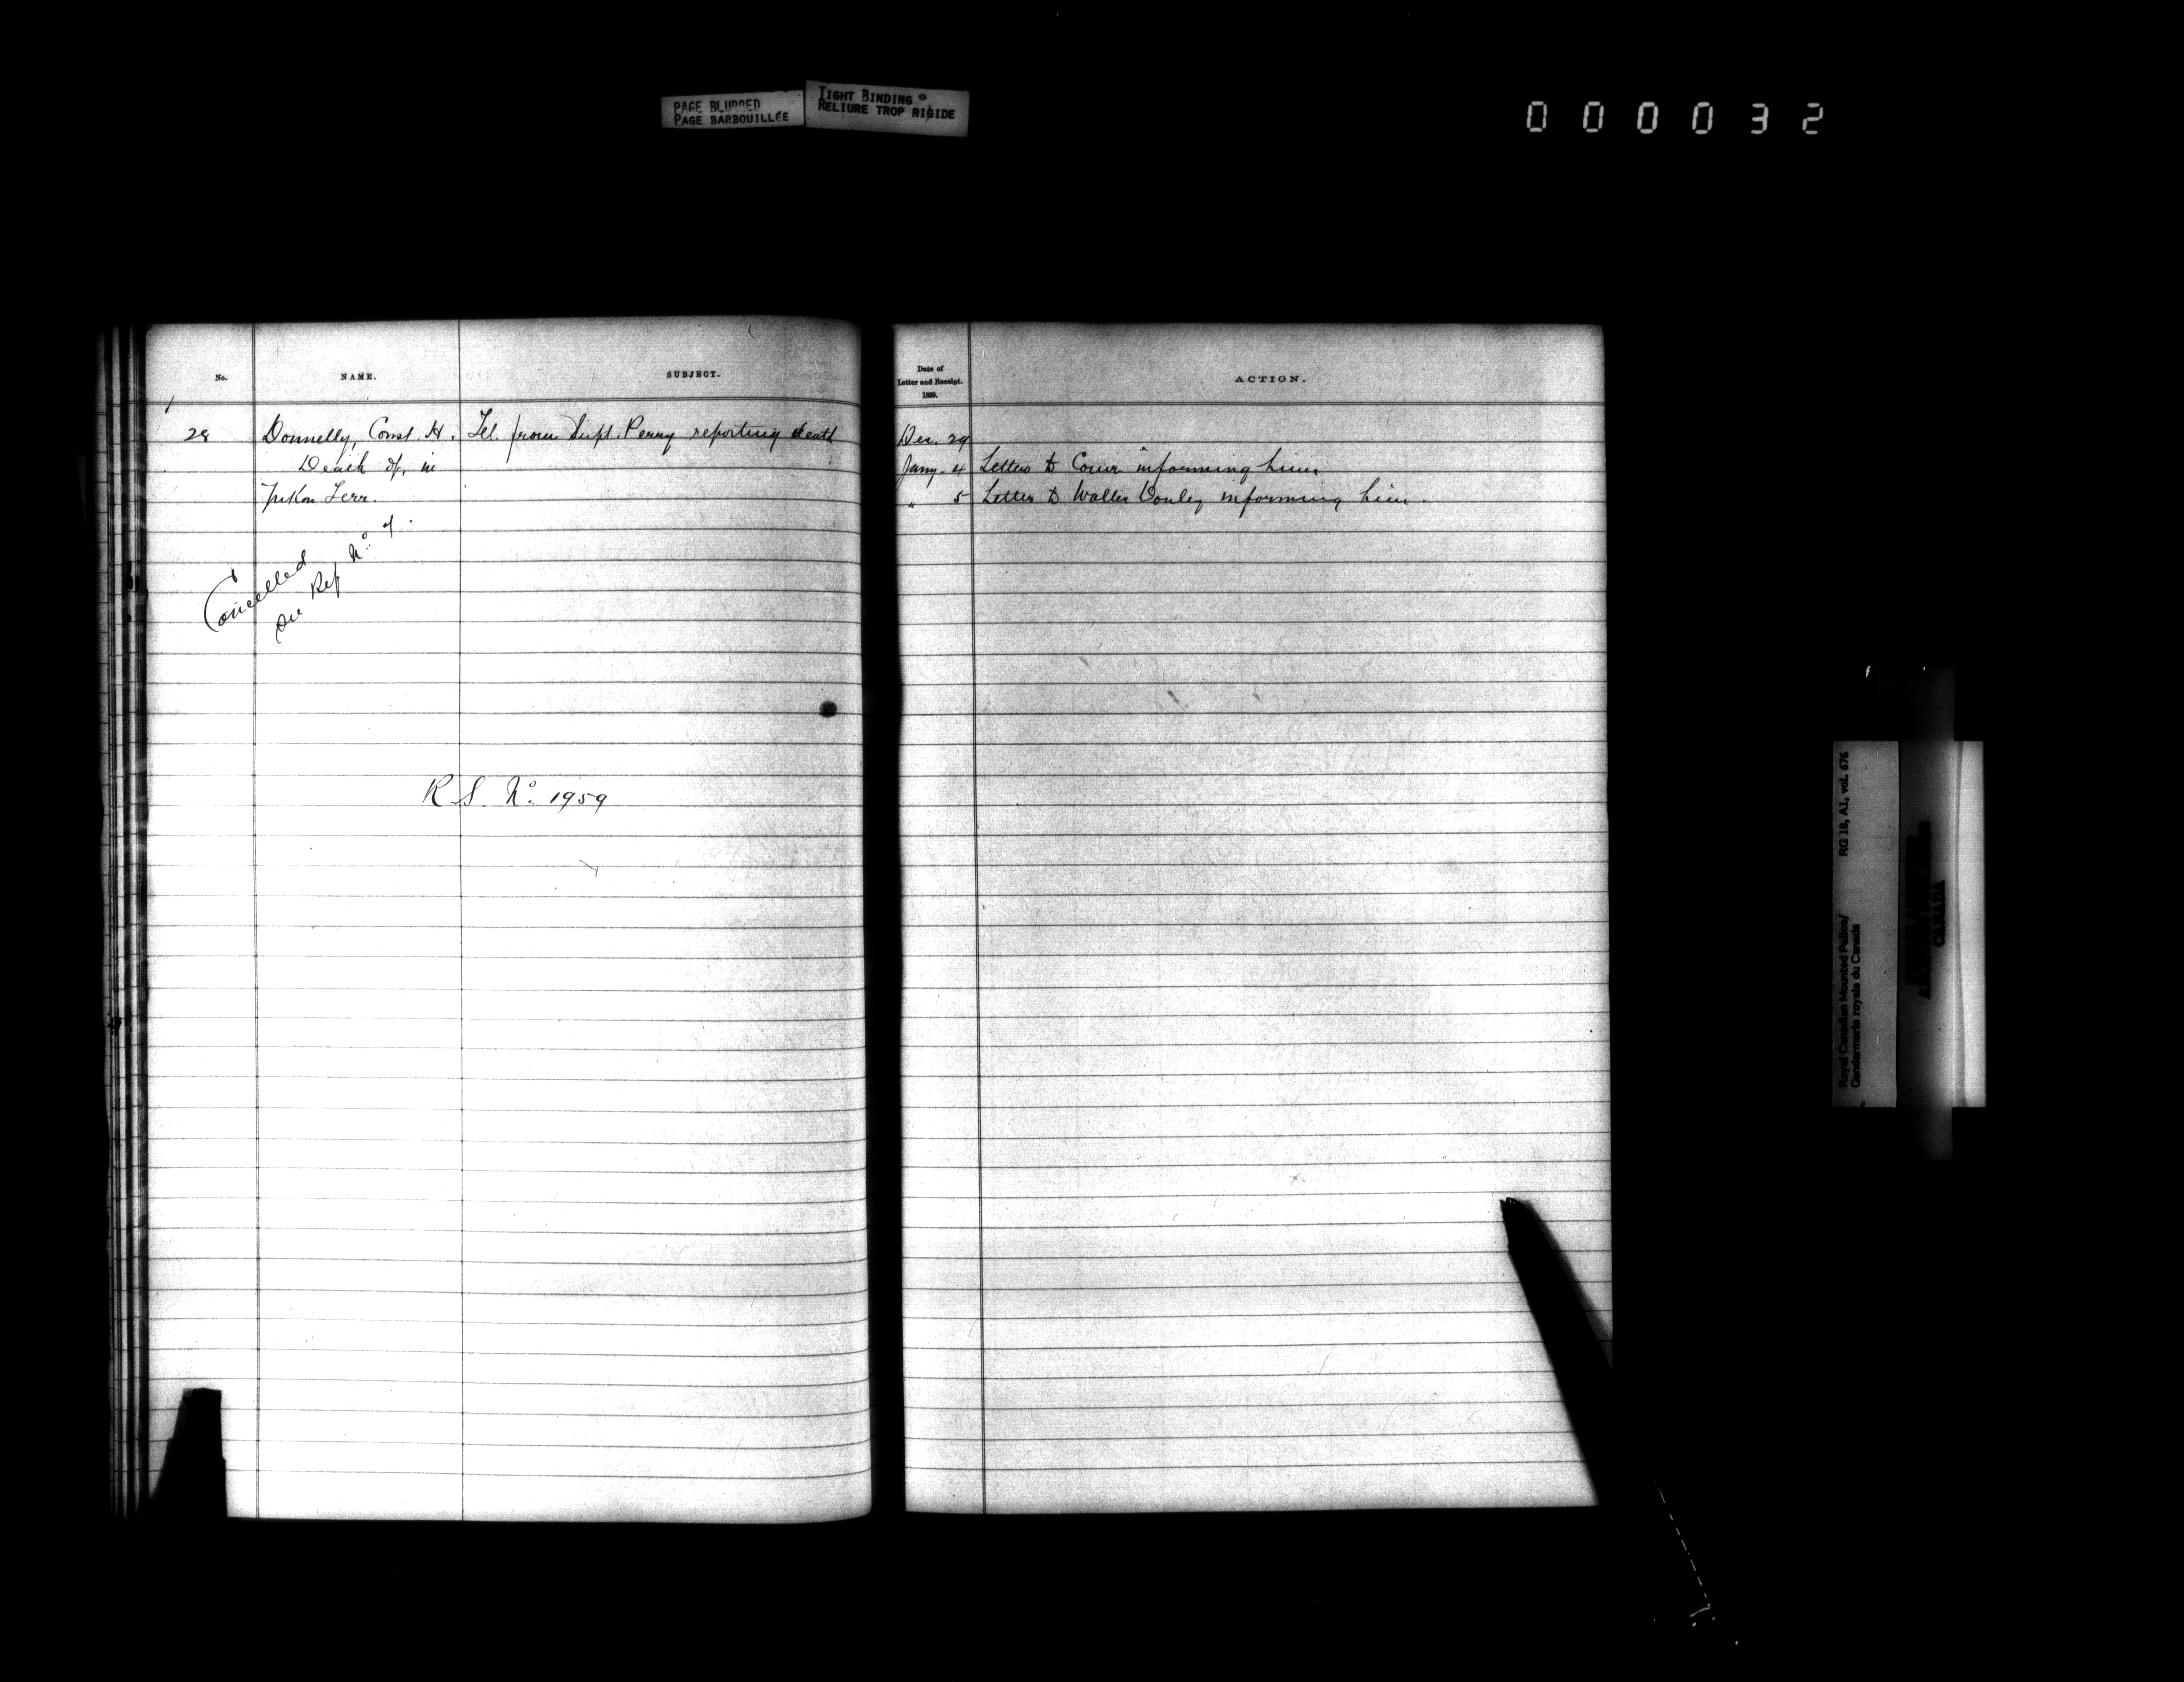 PAGE BLURRED
PAGE BARBOUILLÉE
TIGHT BINDING
RELIURE TROP RIGIDE
000032
No. NAME. SUBJECT.
28 Donnelly, Const. H. Tel. from Supt. Perry reporting death
Death of, in
Yukon Terr.
Cancelled
See Ref No. of.
R S. No. 1959
Date of
Letter and Receipt.
1899.
ACTION.
Dec. 29
Jany. 4 Letter to Comr informing him
" 5 Letter to Walter informing him.
Royal Canadian Mounted Police/
Gendarmerie royale du Canada
RG 18, A1, vol. 676
CANADA